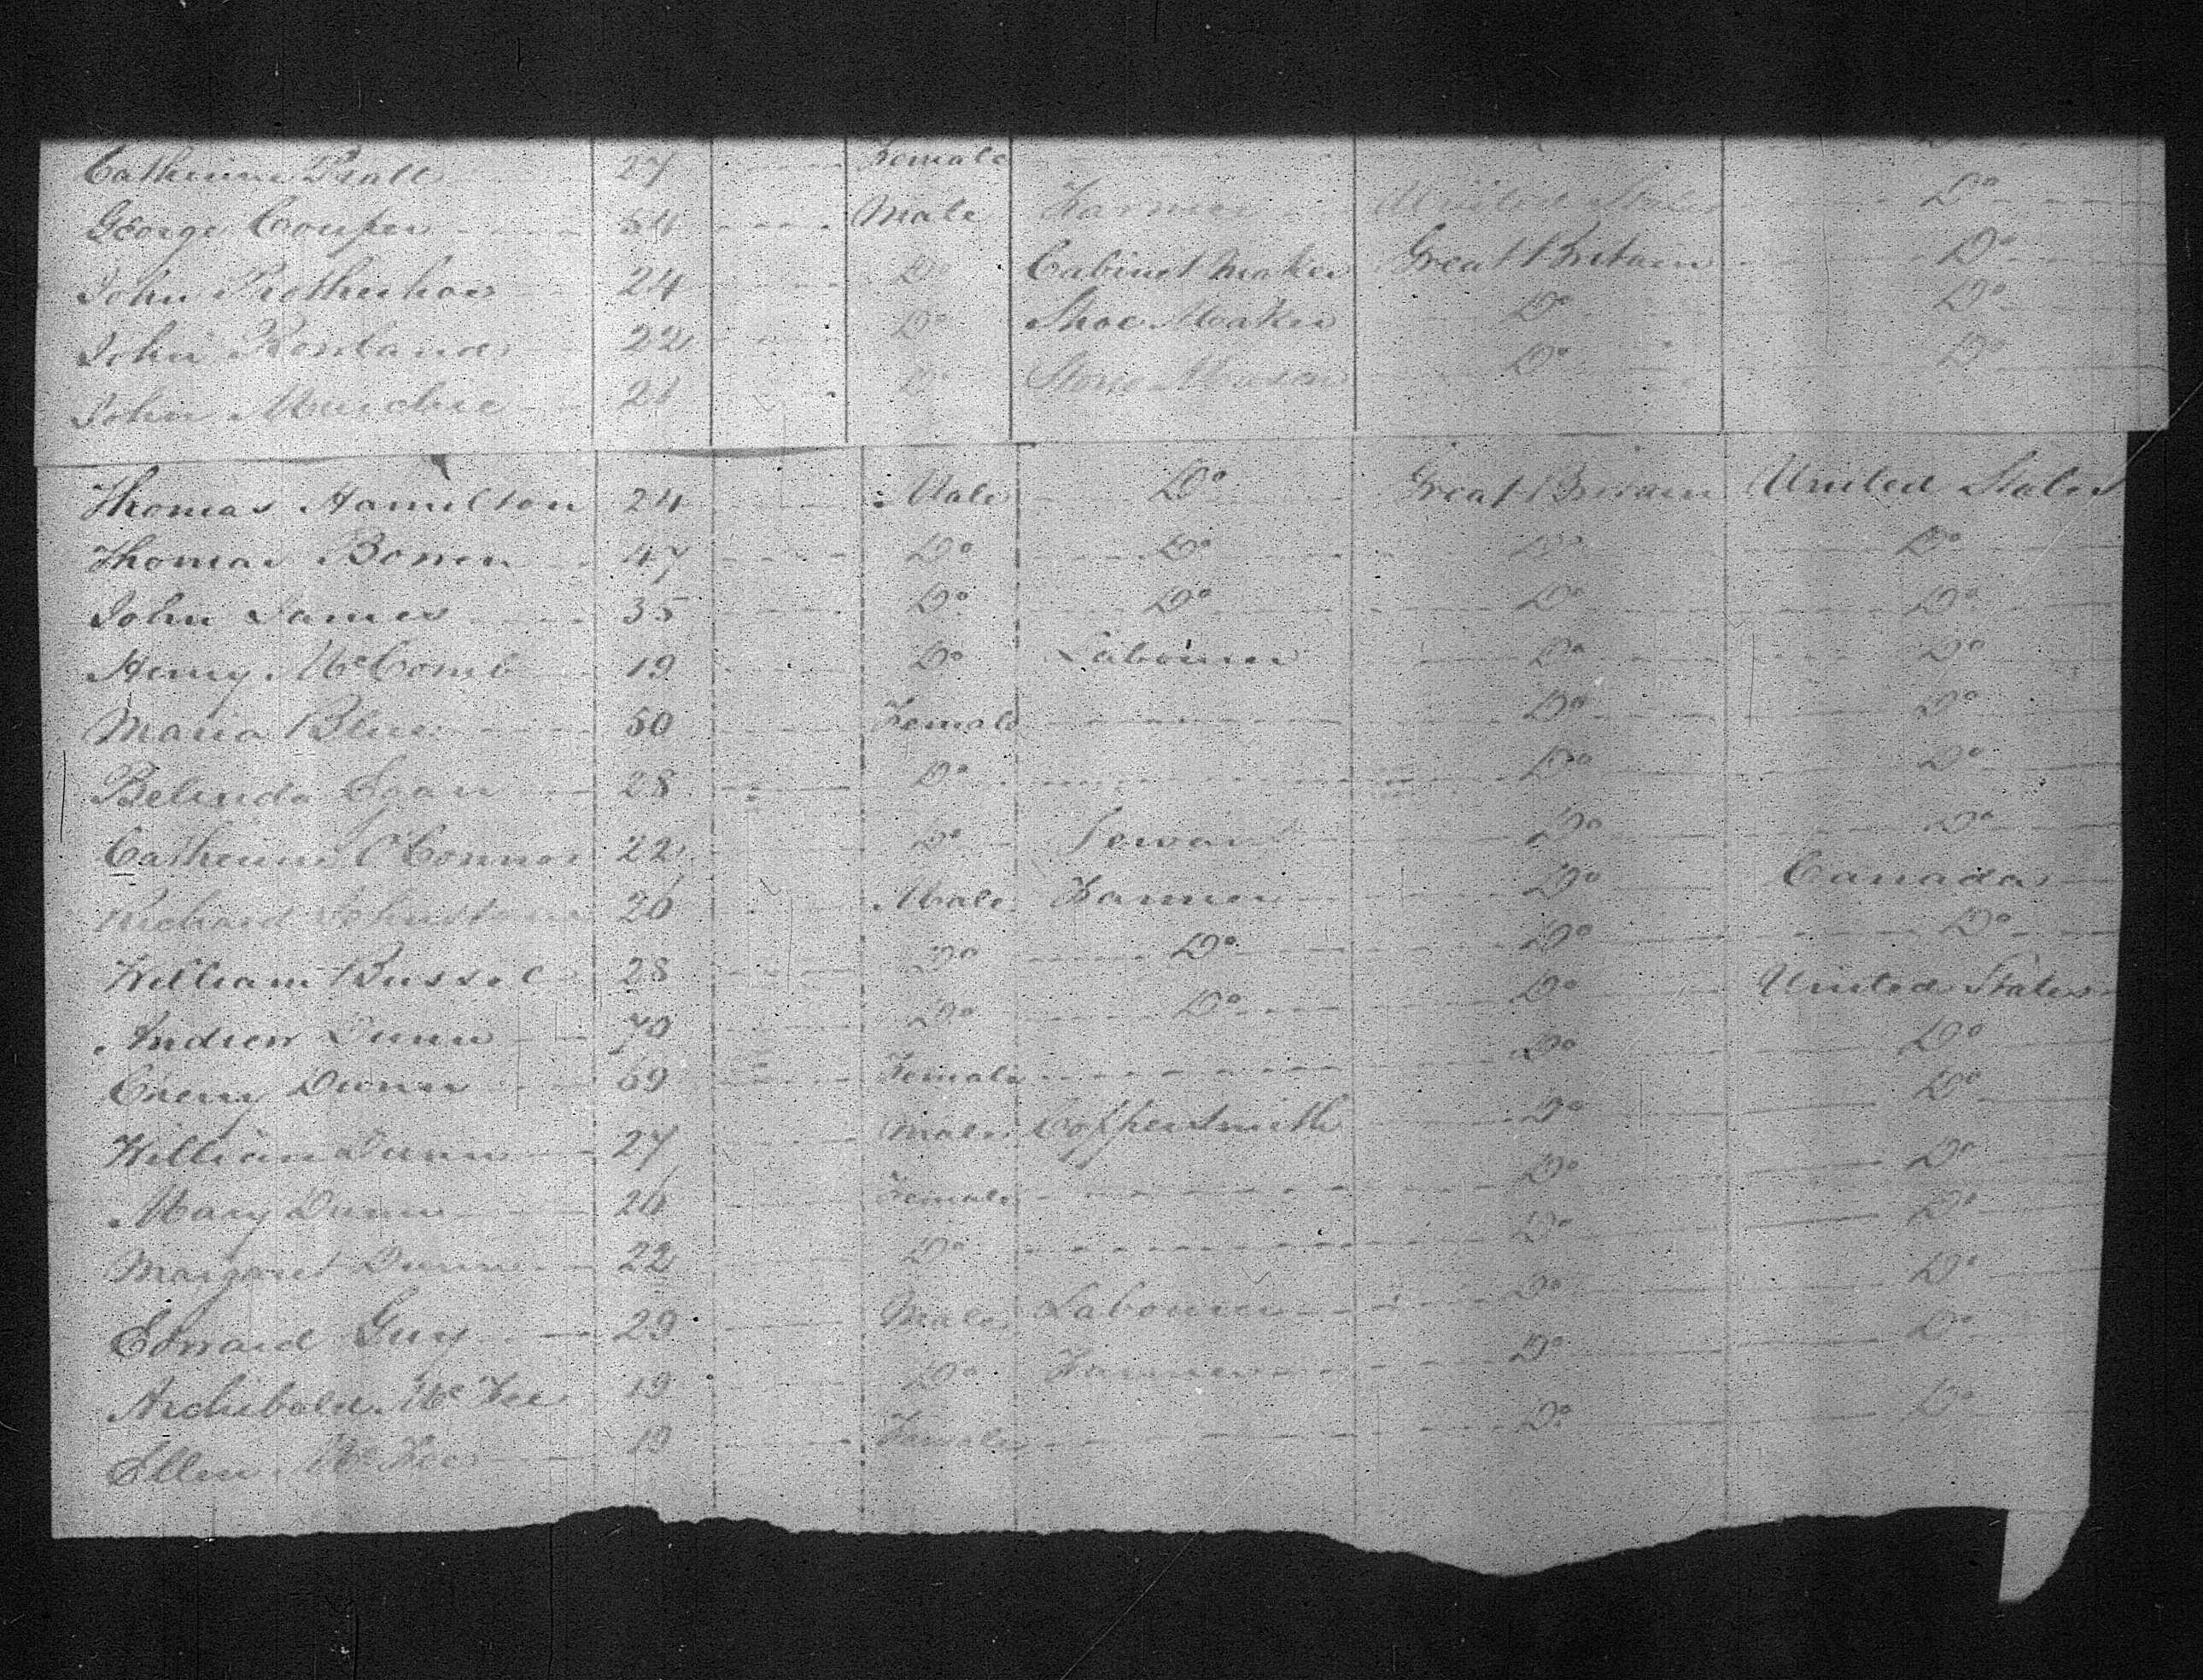 Catherine Prall 27 Female
George Couper 54 Male Farmer United States Do
John Protherhoe 24 Do Cabinet Maker Great Britain Do
John Rowland 22 Do Shoe Maker Do Do
John Murdric 21 Do Stone Mason Do Do
Thomas Hamilton 24 Male Do Great Britain United States
Thomas Bowen 47 Do Do Do Do
John James 35 Do Do Do Do
Henry McComb 19 Do Labourer Do Do
Maria Blue 50 Female Do Do
Belinda 28 Do Do Do
Catherine O'Connor 22 Do Servant Do Do
Richard Johnston 26 Male Farmer Do Canada
William Bussel 28 Do Do Do Do
Andrew Dunn 70 Do Do Do United States
Dunn 69 Female Do Do
William Dunn 27 Male Coppersmith Do Do
Mary Dunn 26 Female Do Do
Margaret Dunn 22 Do Do Do
Edward Guy 29 Male Labourer Do Do
Archibald McFee 19 Do Farmer Do Do
Ellen McFee 19 Female Do Do